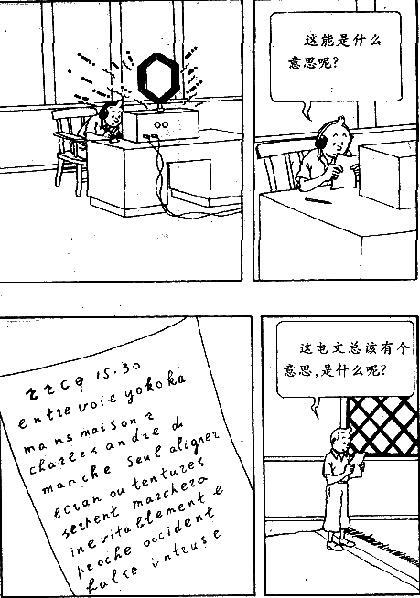 这能是什么
意思呢?
zzcq 15.30
entre voie yokoka
mans maison z
charles andre du
manche seul aligner
ecran ou tentures
serrent marchera
inevitablement e
proche occident
fulse intruse
这电文总该有个
意思,是什么呢?